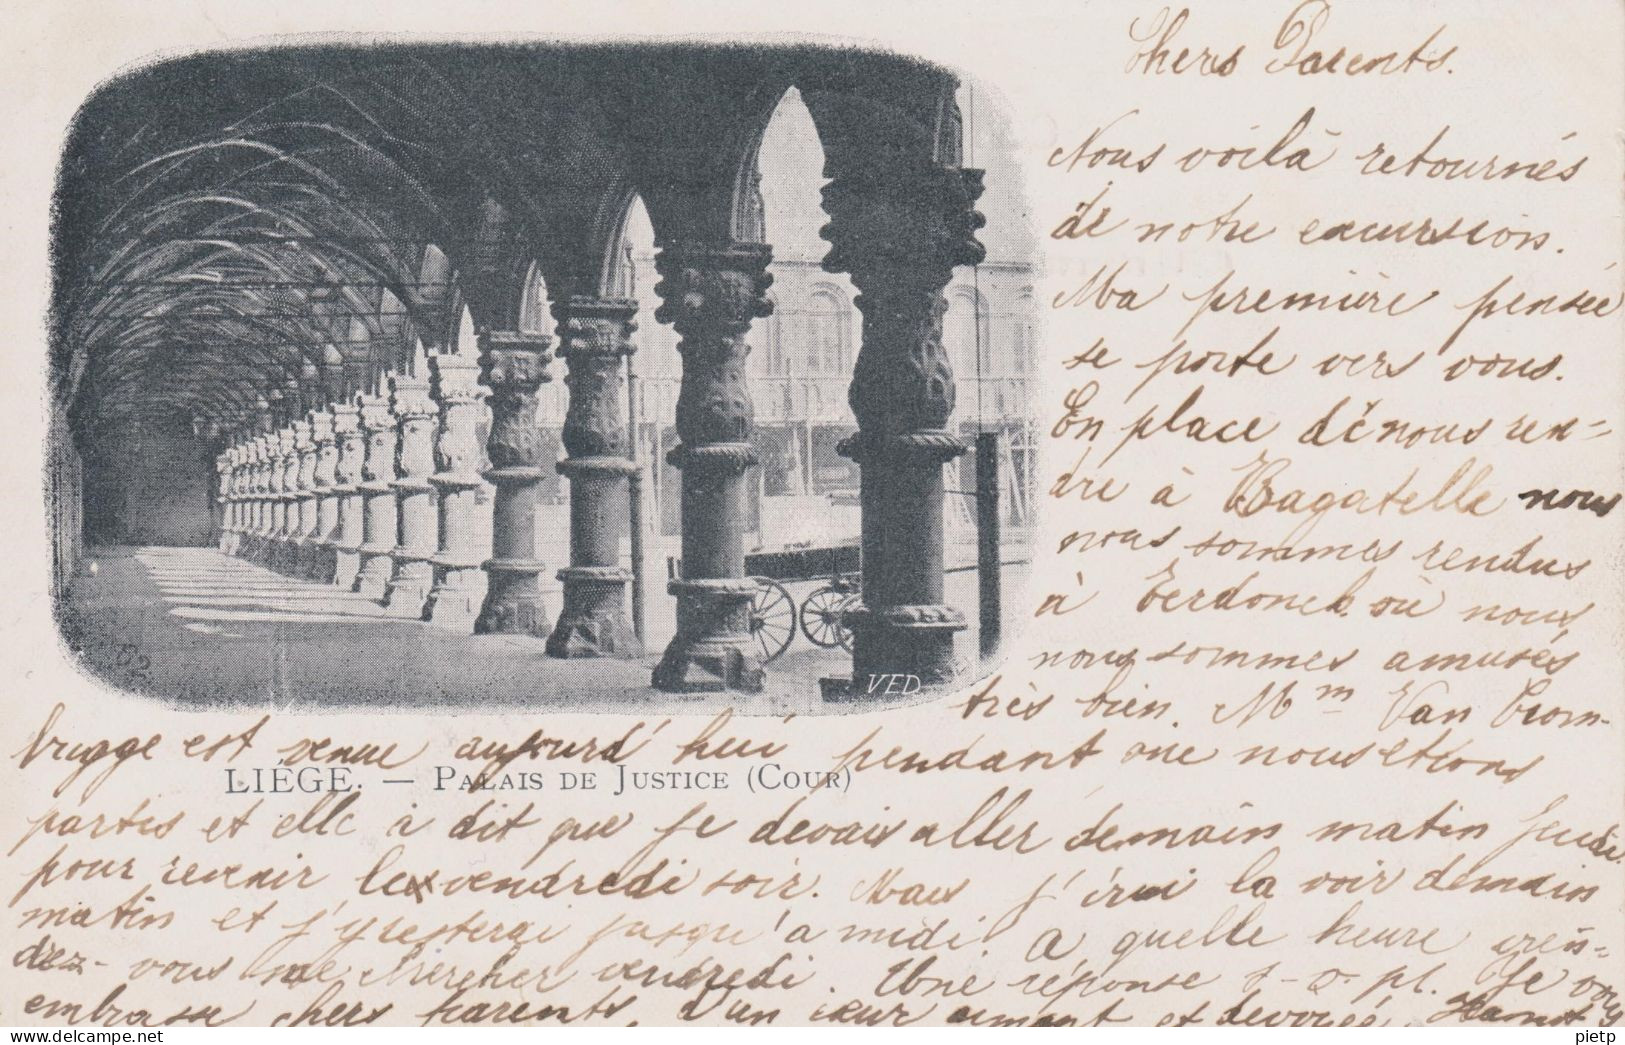 Chers Parents.
Nous voilà retournés
de notre excursion.
Ma première pensée
se porte vers vous.
En place de nous ren=
dre à Bagatelle nous
nous sommes rendus
à où nous
nous sommes amusés
très bien. Mm Van Crom-
brugge est venue aujourd'hui pendant que nous étions
LIÉGE. — PALAIS DE JUSTICE (COUR)
VED
partis et elle à dit que je devais aller demain matin jeudi
pour revenir le vendredi soir. Mais j'irai la voir demain
matin et j'y resterai jusqu'a midi. A quelle heure vien=
drez-vous me chercher vendredi. Une réponse s-v-pl. Je vous
embrasse chers parents, d'un cœur aimant et devouée.
pietp